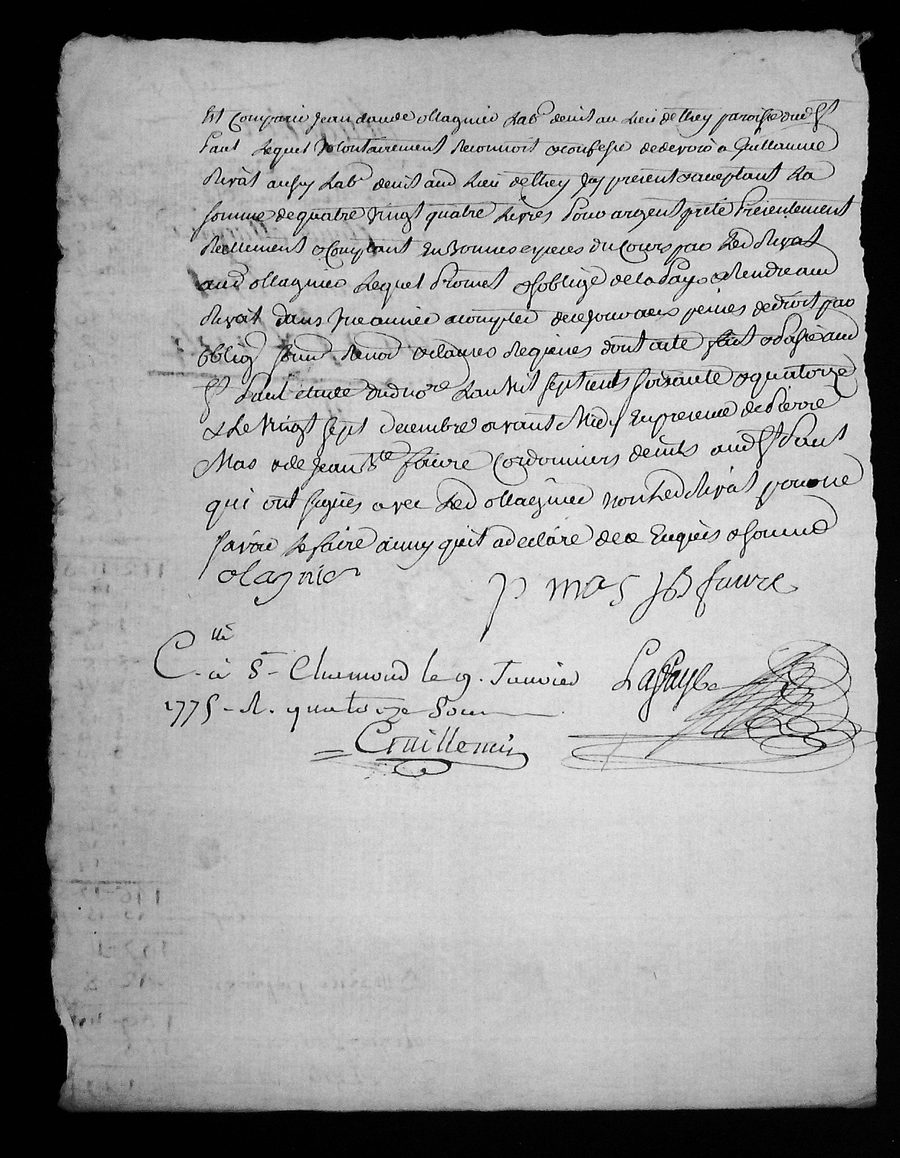 Est Comparu Jean claude ollagnier Lab.r demt au Lieu de They paroisse dud St
Paul Lequel Volontairement Reconnoit & confesse de devoir a Guillaume
Rivat aussy Lab.r demt aud Lieu de They Jcy présent & acceptant La
somme de quatre Vingt quatre Livres Pour argent preté Présentement
Reellement & Comptant En bonnes especes du Cours par Led Rivat
aud ollagnier Lequel Promet & s'oblige de la Payer & Rendre aud
Rivat dans Une année a compter de ce Jour aux peines de droit par
oblig soum Renon & clauses Requises dont acte fait & Passé aud
St Paul etude dud no.re L'an Mil sept cents soixante & quatorze
& Le Vingt sept decembre avant Midy En presence de Pierre
Mas & de Jean B.te faure Cordonniers demts aud St Paul
qui ont signés avec Led ollagnier non Led Rivat pour ne
savoir Le faire ainsy qu'il a declaré de ce Enquis & sommé
olagnier
P mas JB faure
C.llé à St Chamond le 9. Janvier
1775 - R. quatorze Sous
Lassaigne